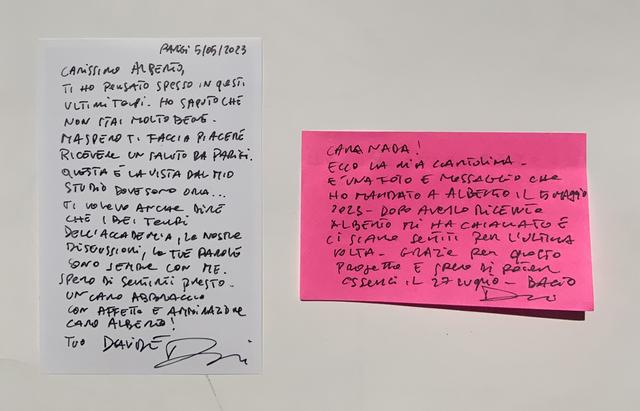 PARIGI 5/05/2023
CARISSIMO ALBERTO,
TI HO PENSATO SPESSO IN QUESTI
ULTIMI TEMPI. HO SAPUTO CHE
NON STAI MOLTO BENE.
MA SPERO TI FACCIA PIACERE
RICEVERE UN SALUTO DA PARIGI.
QUESTA È LA VISTA DAL MIO
STUDIO DOVE SONO ORA...
TI VOLEVO ANCHE DIRE
CHE I BEI TEMPI
DELL'ACCADEMIA, LE NOSTRE
DISCUSSIONI, LE TUE PAROLE
SONO SEMPRE CON ME.
SPERO DI SENTIRTI PRESTO.
UN CARO ABBRACCIO
CON AFFETTO E AMMIRAZIONE
CARO ALBERTO!
TUO DAVIDE
CARA NADA!
ECCO LA MIA CARTOLINA -
È UNA FOTO E MESSAGGIO CHE
HO MANDATO A ALBERTO IL 5 MAGGIO
2023 - DOPO AVERLO RICEVUTO
ALBERTO MI HA CHIAMATO E
CI SIAMO SENTITI PER L'ULTIMA
VOLTA - GRAZIE PER QUESTO
PROGETTO E SPERO DI POTER
ESSERCI IL 27 LUGLIO - BACIO